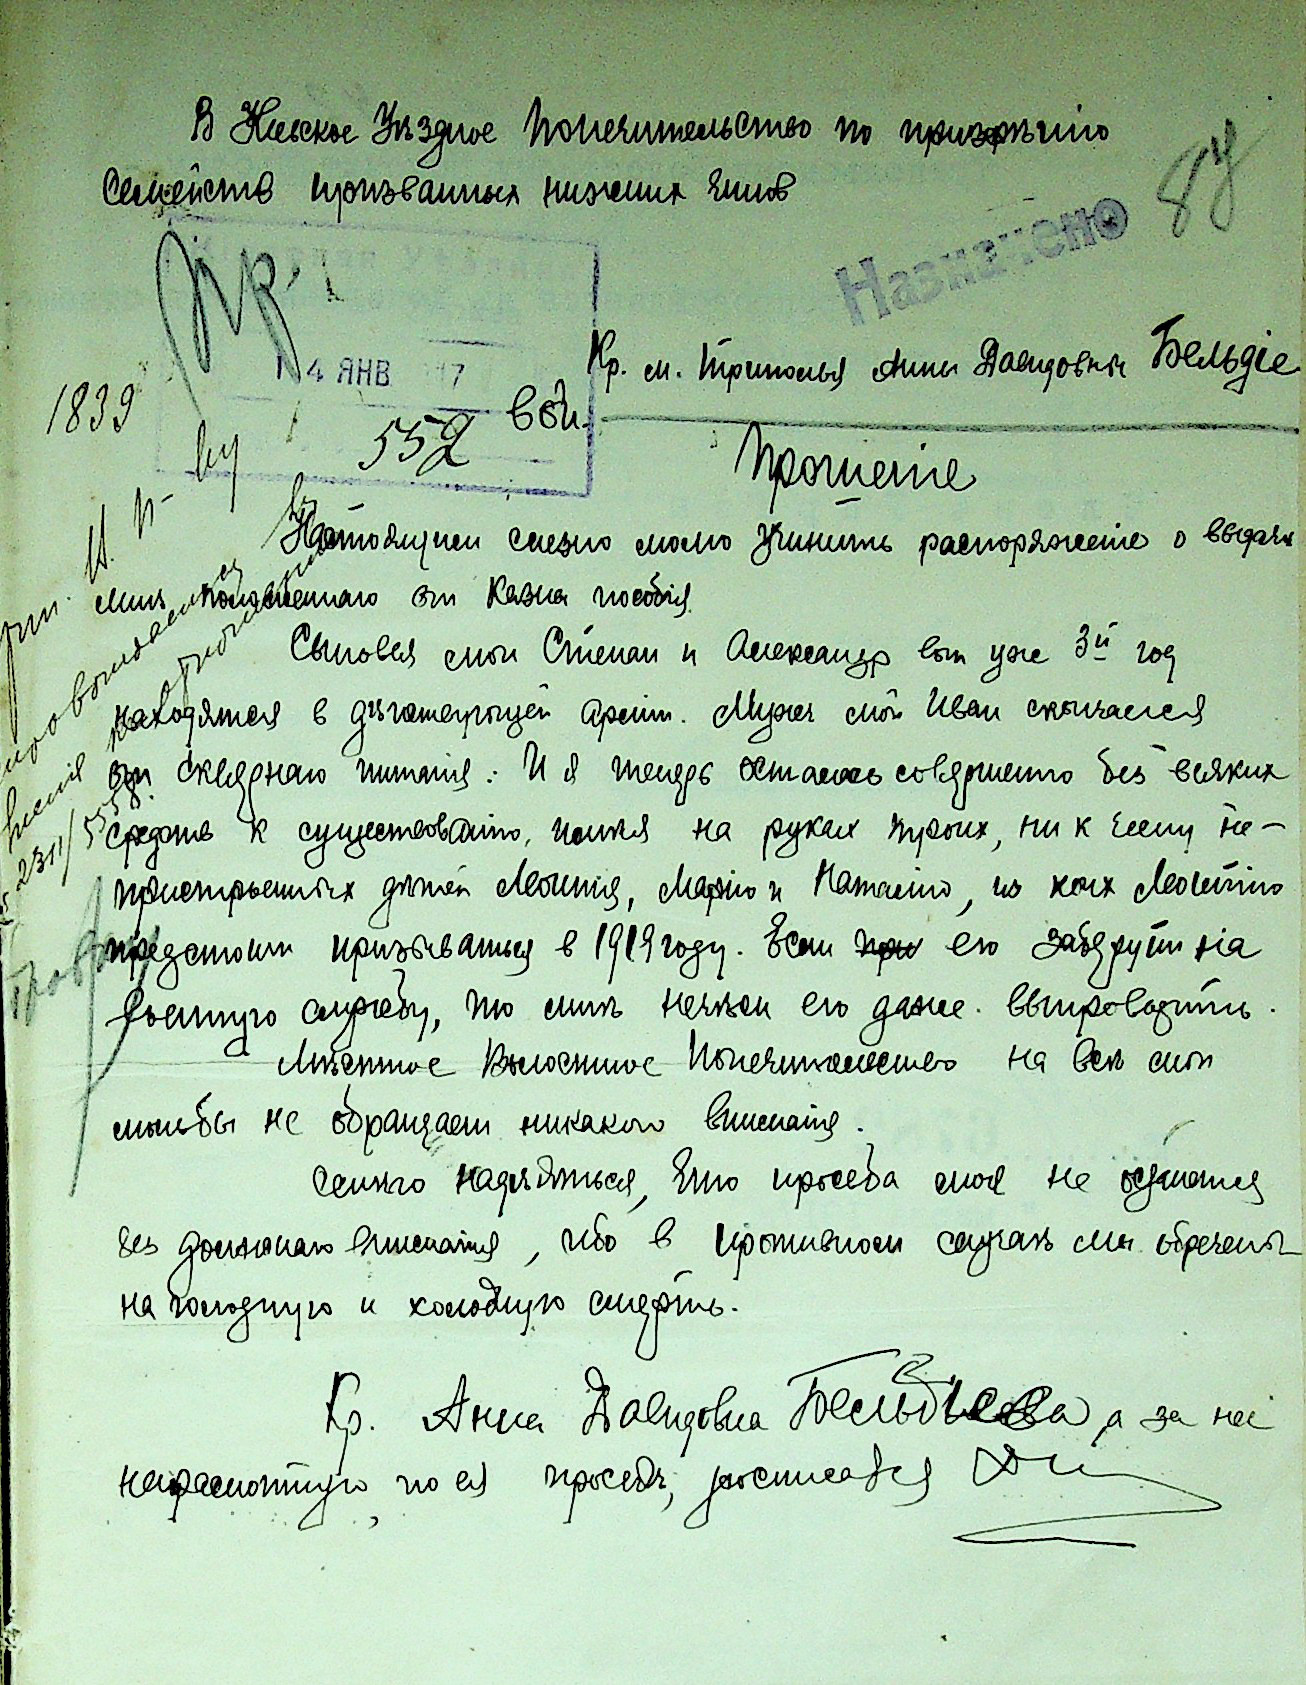 В Киевское Уѣздное Попечительство по призрѣнію
семейств призванных нижних чинов
84
Назначено
Кр. м. Триполья Анны Давидовны Бельдіе
4 ЯНВ 17
1839
552
Прошеніе
Настоящим слезно молю учинить распоряженіе о выдачѣ
мнѣ положеннаго от казны пособія.
Сыновья мои Степан и Александр вот уже 3й год
находятся в дѣйствующей арміи. Муж мой Иван скончался
от сквернаго питанія. И я теперь осталась совершенно без всяких
средств к существованію, имѣя на руках троих, ни к чему не-
пристроенных дѣтей Леонтія, Марію и Наталію, из коих Леонтію
предстоит призываться в 1919 году. Если его заберут на
военную службу, то мнѣ нечѣм его даже выпроводить.
Мѣстное Волостное Попечительство на всѣ мои
мольбы не обращает никакого вниманія.
Смѣю надѣяться, что просьба моя не останется
без должнаго вниманія, ибо в противном случаѣ мы обречены
на голодную и холодную смерть.
Кр. Анна Давидовна Бельдіева, а за неё
неграмотную, по ея просьбѣ, росписался